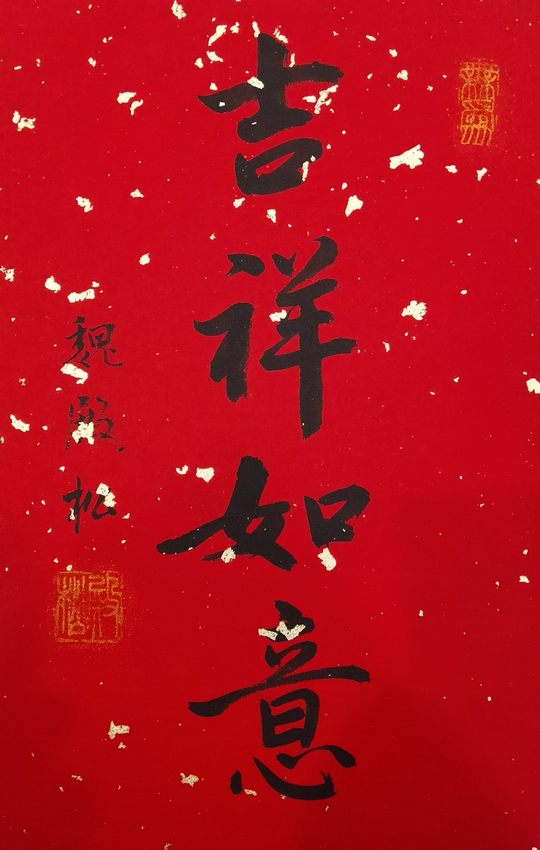 吉祥如意
魏殿松